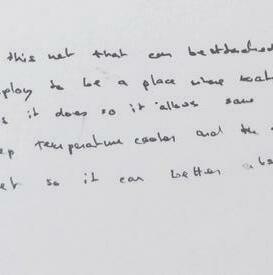 this net that can be
ploy to be a place where
s it does so it allows some
ep temperature cooler and the
et so it can better